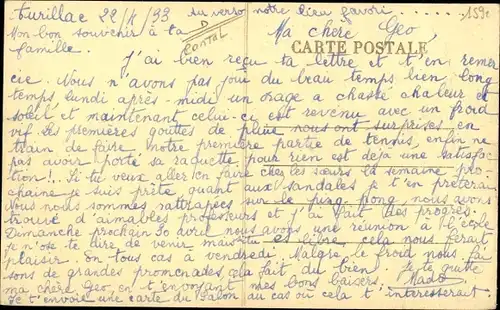 Aurillac 22/4/33 Au verso notre lieu favori.......
Mon bon souvenir à ta famille.
Cantal
Ma chère Geo,
CARTE POSTALE
J'ai bien reçu ta lettre et t'en remer
cie. Nous n'avons pas joui du beau temps bien long
temps, lundi après-midi un orage a chassé chaleur et
soleil et maintenant celui-ci est revenu avec un froid
vif. Les premières gouttes de pluie nous ont surprises en
train de faire notre première partie de tennis, enfin ne
pas avoir porté sa raquette pour rien est déjà une satisfac
tion!.. Si tu veux aller chez les sœurs la semaine pro-
chaine je suis prête quant aux sandales je t'en prêterai
Nous nous sommes rattrapées sur le ping-pong nous avons
trouvé d'aimables professeurs et j'ai fait des progrès.
Dimanche prochain 30 avril nous avons une réunion à l'école
je n'ose te dire de venir mais tu es libre cela nous ferait
plaisir. En tous cas à vendredi. Malgré le froid nous fai
sons de grandes promenades, cela fait du bien. Je te quitte
ma chère Geo, en t'envoyant mes bons baisers. Mado
Je t'envoie une carte du Salon au cas où cela t'intéresserait.